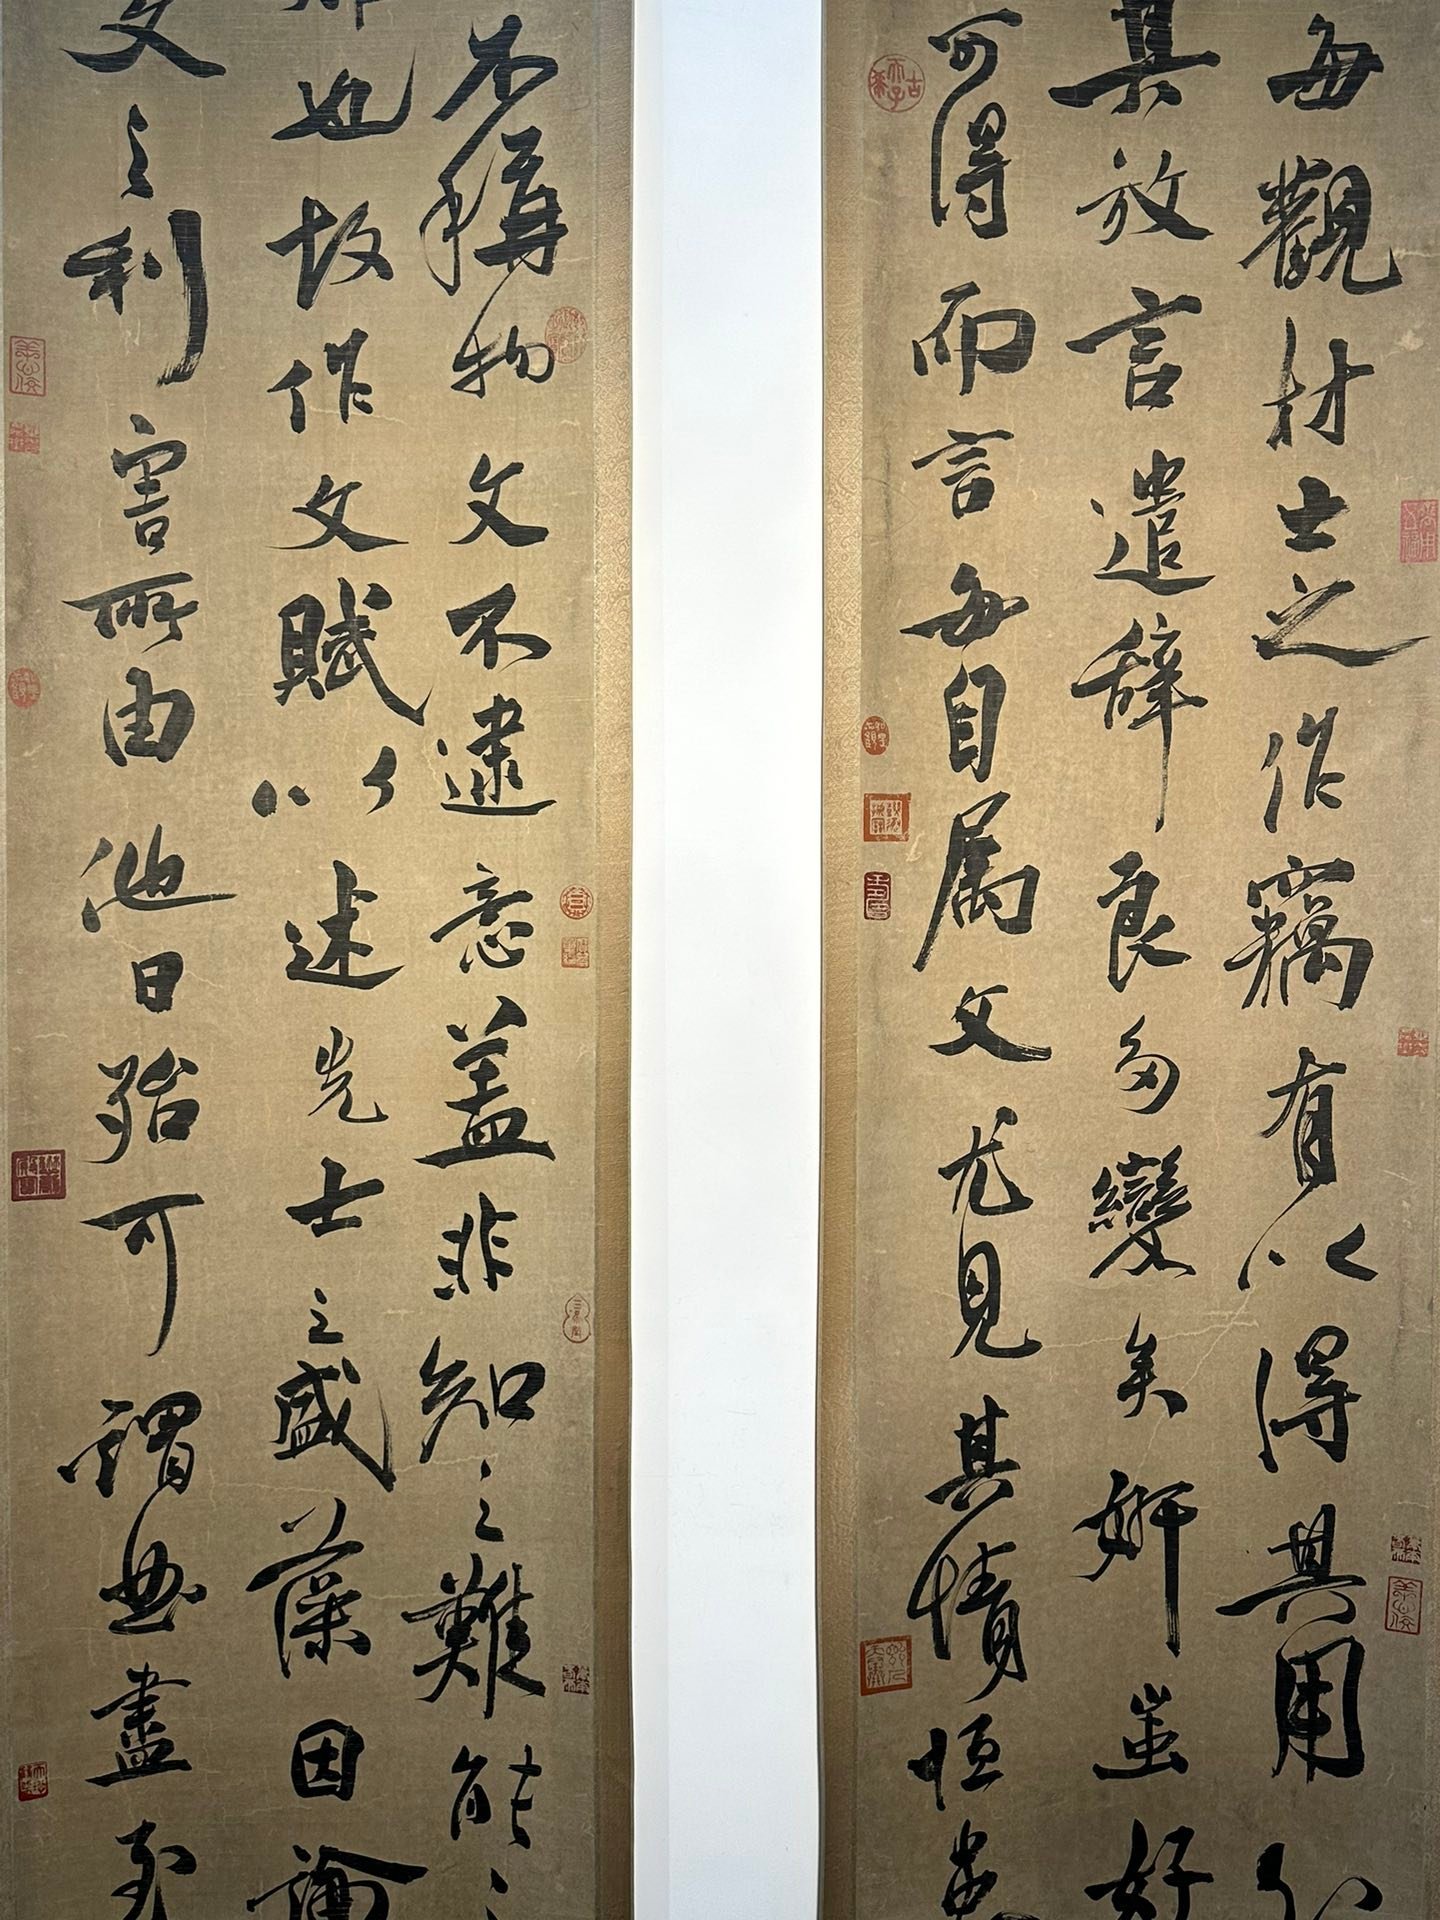 每觀材士之作竊有以得其用心
其放言遣辭良多變矣妍蚩好
可得而言每自属文尤見其情恒患
不稱物文不逮意蓋非知之難能之
也故作文賦以述先士之盛藻因論
文之利害所由他日殆可謂曲盡